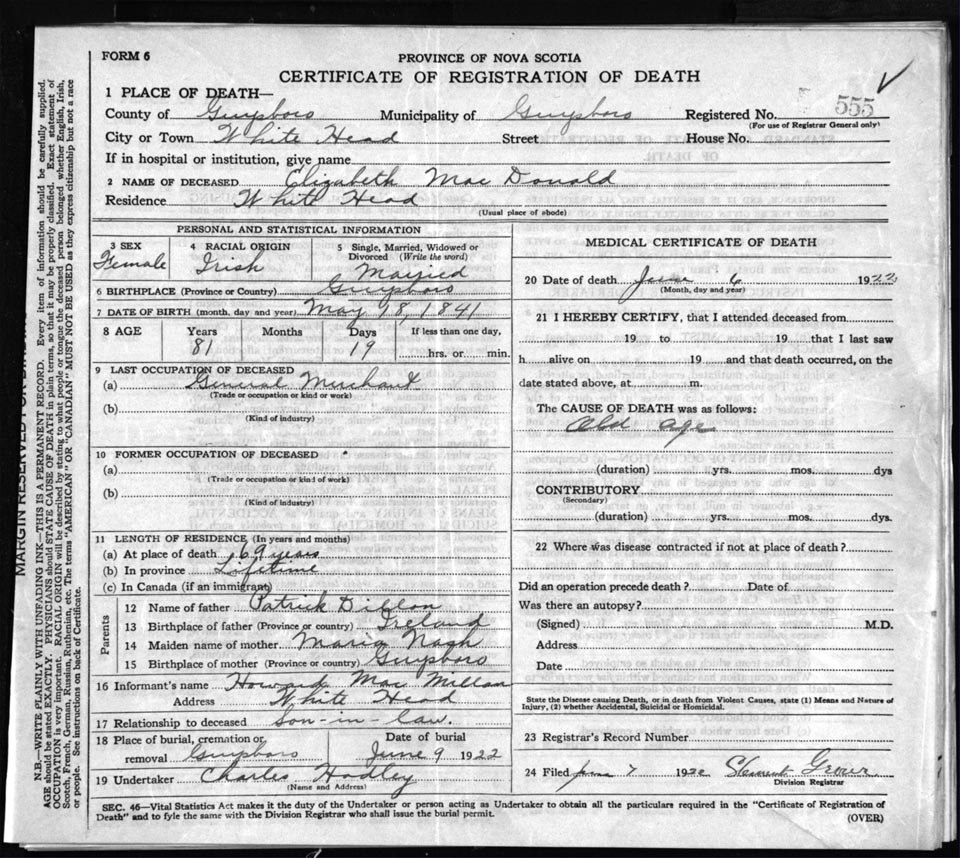 FORM 6
PROVINCE OF NOVA SCOTIA
CERTIFICATE OF REGISTRATION OF DEATH
1 PLACE OF DEATH—
County of Guysboro Municipality of Guysboro Registered No. 555
(For use of Registrar General only)
City or Town White Head Street House No.
If in hospital or institution, give name
2 NAME OF DECEASED Elizabeth Mac Donald
Residence White Head
(Usual place of abode)
PERSONAL AND STATISTICAL INFORMATION
3 SEX 4 RACIAL ORIGIN 5 Single, Married, Widowed or
Divorced (Write the word)
Female Irish Married
6 BIRTHPLACE (Province or Country) Guysboro
7 DATE OF BIRTH (month, day and year) May 18, 1841
8 AGE Years Months Days If less than one day,
81 19 hrs. or min.
9 LAST OCCUPATION OF DECEASED
(a) General Merchant
(Trade or occupation or kind or work)
(b)
(Kind of industry)
10 FORMER OCCUPATION OF DECEASED
(a)
(Trade or occupation or kind of work)
(b)
(Kind of industry)
11 LENGTH OF RESIDENCE (In years and months)
(a) At place of death 69 years
(b) In province Lifetime
(c) In Canada (if an immigrant)
Parents
12 Name of father Patrick Dillon
13 Birthplace of father (Province or country) Ireland
14 Maiden name of mother Maria Nash
15 Birthplace of mother (Province or country) Guysboro
16 Informant's name Howard Mac Millan
Address White Head
17 Relationship to deceased son-in-law.
18 Place of burial, cremation or Date of burial
removal Guysboro June 9 1922
19 Undertaker Charles Hadley
(Name and Address)
MEDICAL CERTIFICATE OF DEATH
20 Date of death June 6 1922
(Month, day and year)
21 I HEREBY CERTIFY, that I attended deceased from
19 to 19 that I last saw
h alive on 19 and that death occurred, on the
date stated above, at m.
The CAUSE OF DEATH was as follows:
Old age
(duration) yrs. mos. dys
CONTRIBUTORY
(Secondary)
(duration) yrs. mos. dys.
22 Where was disease contracted if not at place of death?
Did an operation precede death? Date of
Was there an autopsy?
(Signed) M.D.
Address
Date
State the Disease causing Death, or in death from Violent Causes, state (1) Means and Nature of
Injury, (2) whether Accidental, Suicidal or Homicidal.
23 Registrar's Record Number
24 Filed June 7 1922
Division Registrar
SEC. 46—Vital Statistics Act makes it the duty of the Undertaker or person acting as Undertaker to obtain all the particulars required in the "Certificate of Registration of
Death" and to fyle the same with the Division Registrar who shall issue the burial permit.
(OVER)
MARGIN RESERVED FOR
N.B.—WRITE PLAINLY WITH UNFADING INK—THIS IS A PERMANENT RECORD. Every item of information should be carefully supplied.
AGE should be stated EXACTLY. PHYSICIANS should STATE CAUSE OF DEATH in plain terms, so that it may be properly classified. Exact statement of
OCCUPATION is very important. RACIAL ORIGIN will be described by stating to what people or tongue the deceased person belonged whether English, Irish,
Scotch, French, German, Russian, Ruthenian, etc. The terms "AMERICAN" OR "CANADIAN" MUST NOT BE USED as they express citizenship but not a race
or people. See instructions on back of Certificate.